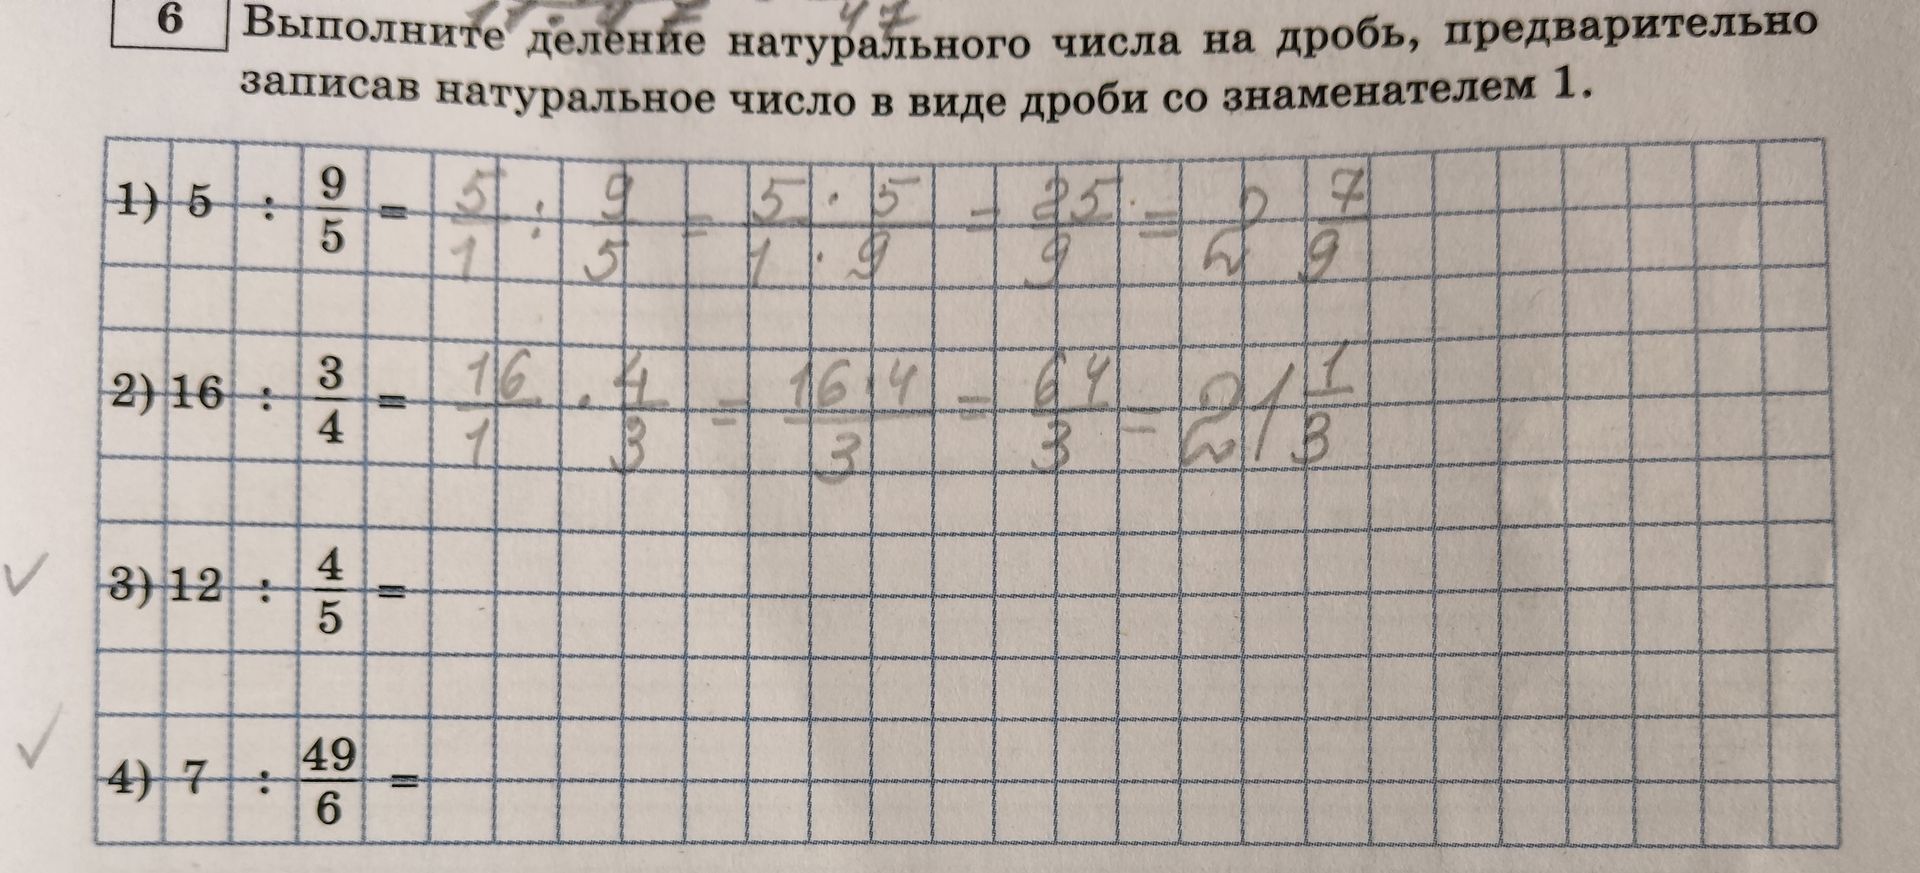 11 · 47 47
6 Выполните деление натурального числа на дробь, предварительно
записав натуральное число в виде дроби со знаменателем 1.
1) 5 : 9/5 = 5/1 : 9/5 = 5 · 5/1 · 9 = 25/9 = 2 7/9
2) 16 : 3/4 = 16/1 · 4/3 = 16 · 4/3 = 64/3 = 21 1/3
3) 12 : 4/5 =
4) 7 : 49/6 =